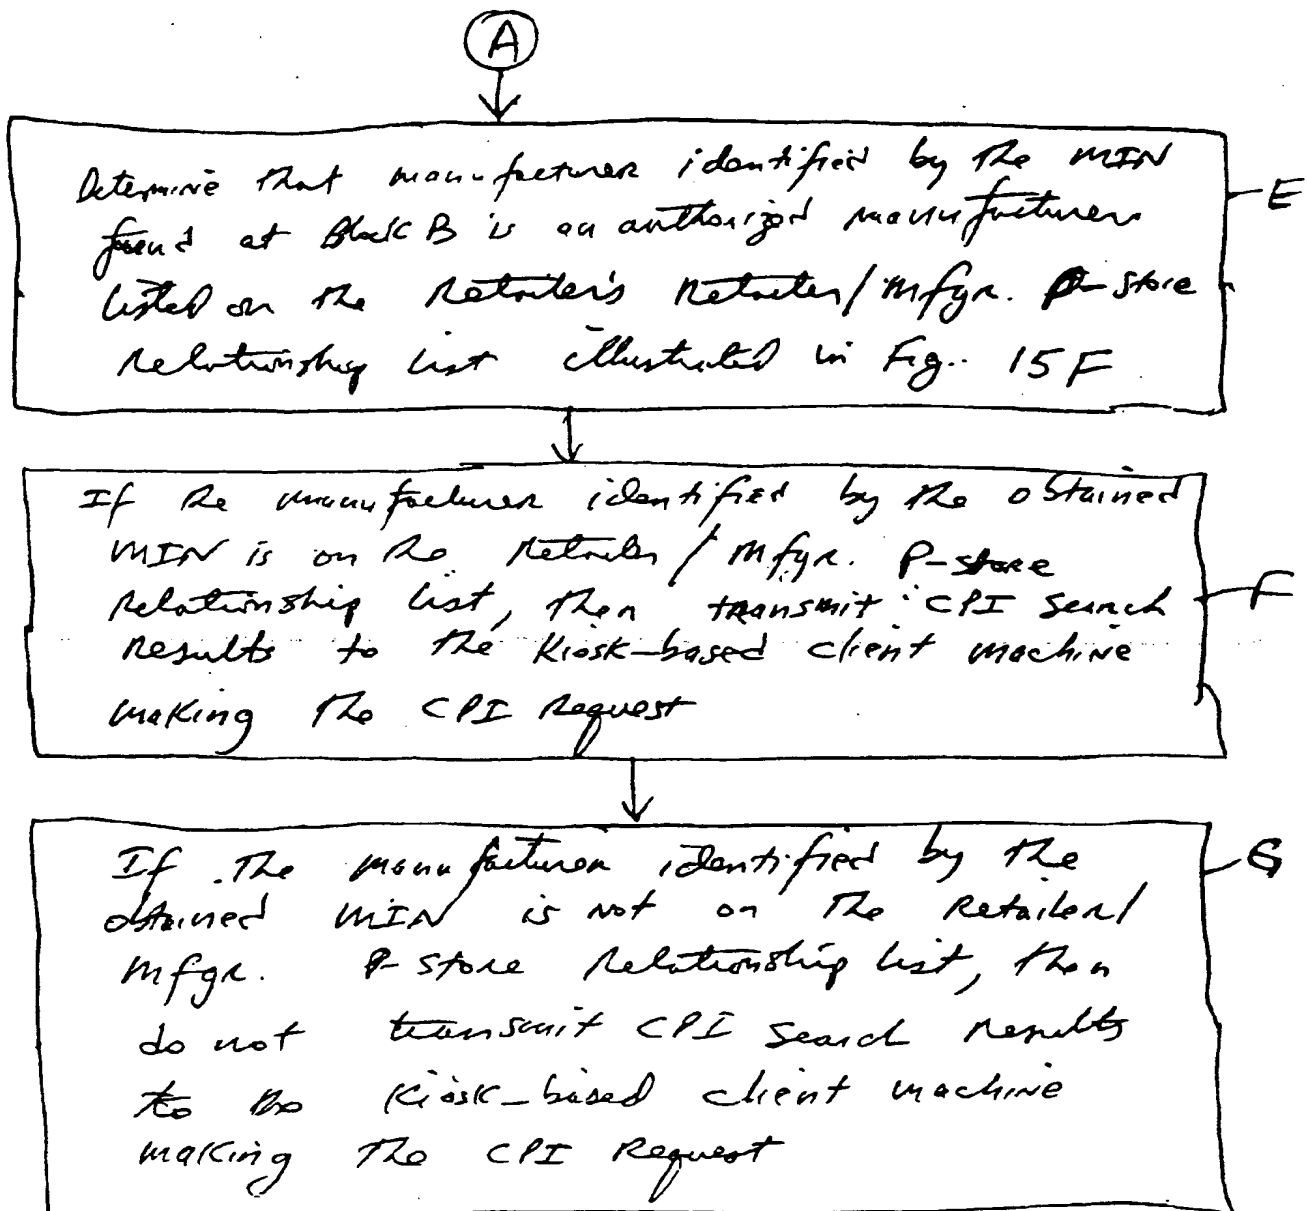 A
Determine that manufacturer identified by the MIN
E
found at Block B is an authorized manufacturer
listed on the Retailer's Retailer/Mfgr. P-store
Relationship list illustrated in Fig. 15F
If the manufacturer identified by the obtained
MIN is on the Retailer / Mfgr. P-store
F
Relationship list, then transmit CPI Search
Results to the Kiosk-based client machine
making the CPI Request
If the manufacturer identified by the
G
obtained MIN is not on the Retailer/
Mfgr. P-store Relationship list, then
do not transmit CPI Search Results
to the Kiosk-based client machine
making the CPI Request